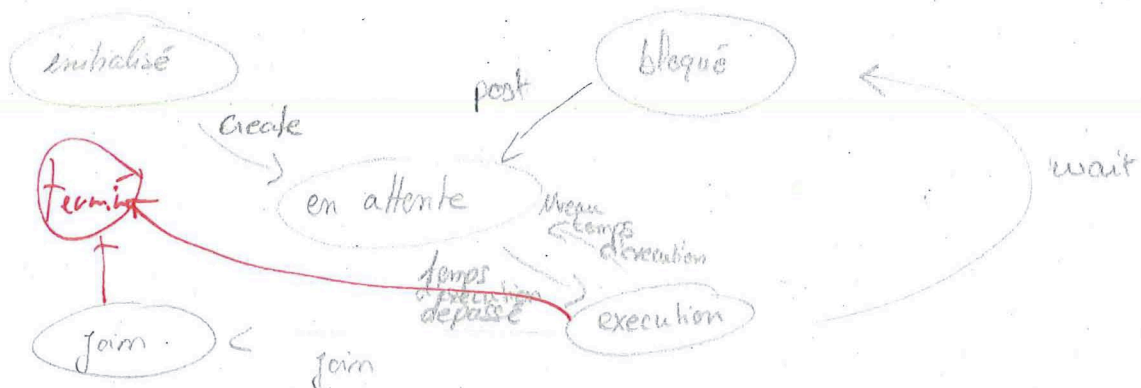 initialisé
bloqué
post
create
wait
termine
en attente
Niveau
temps
d'execution
temps
d'exécution
dépassé
execution
join
join